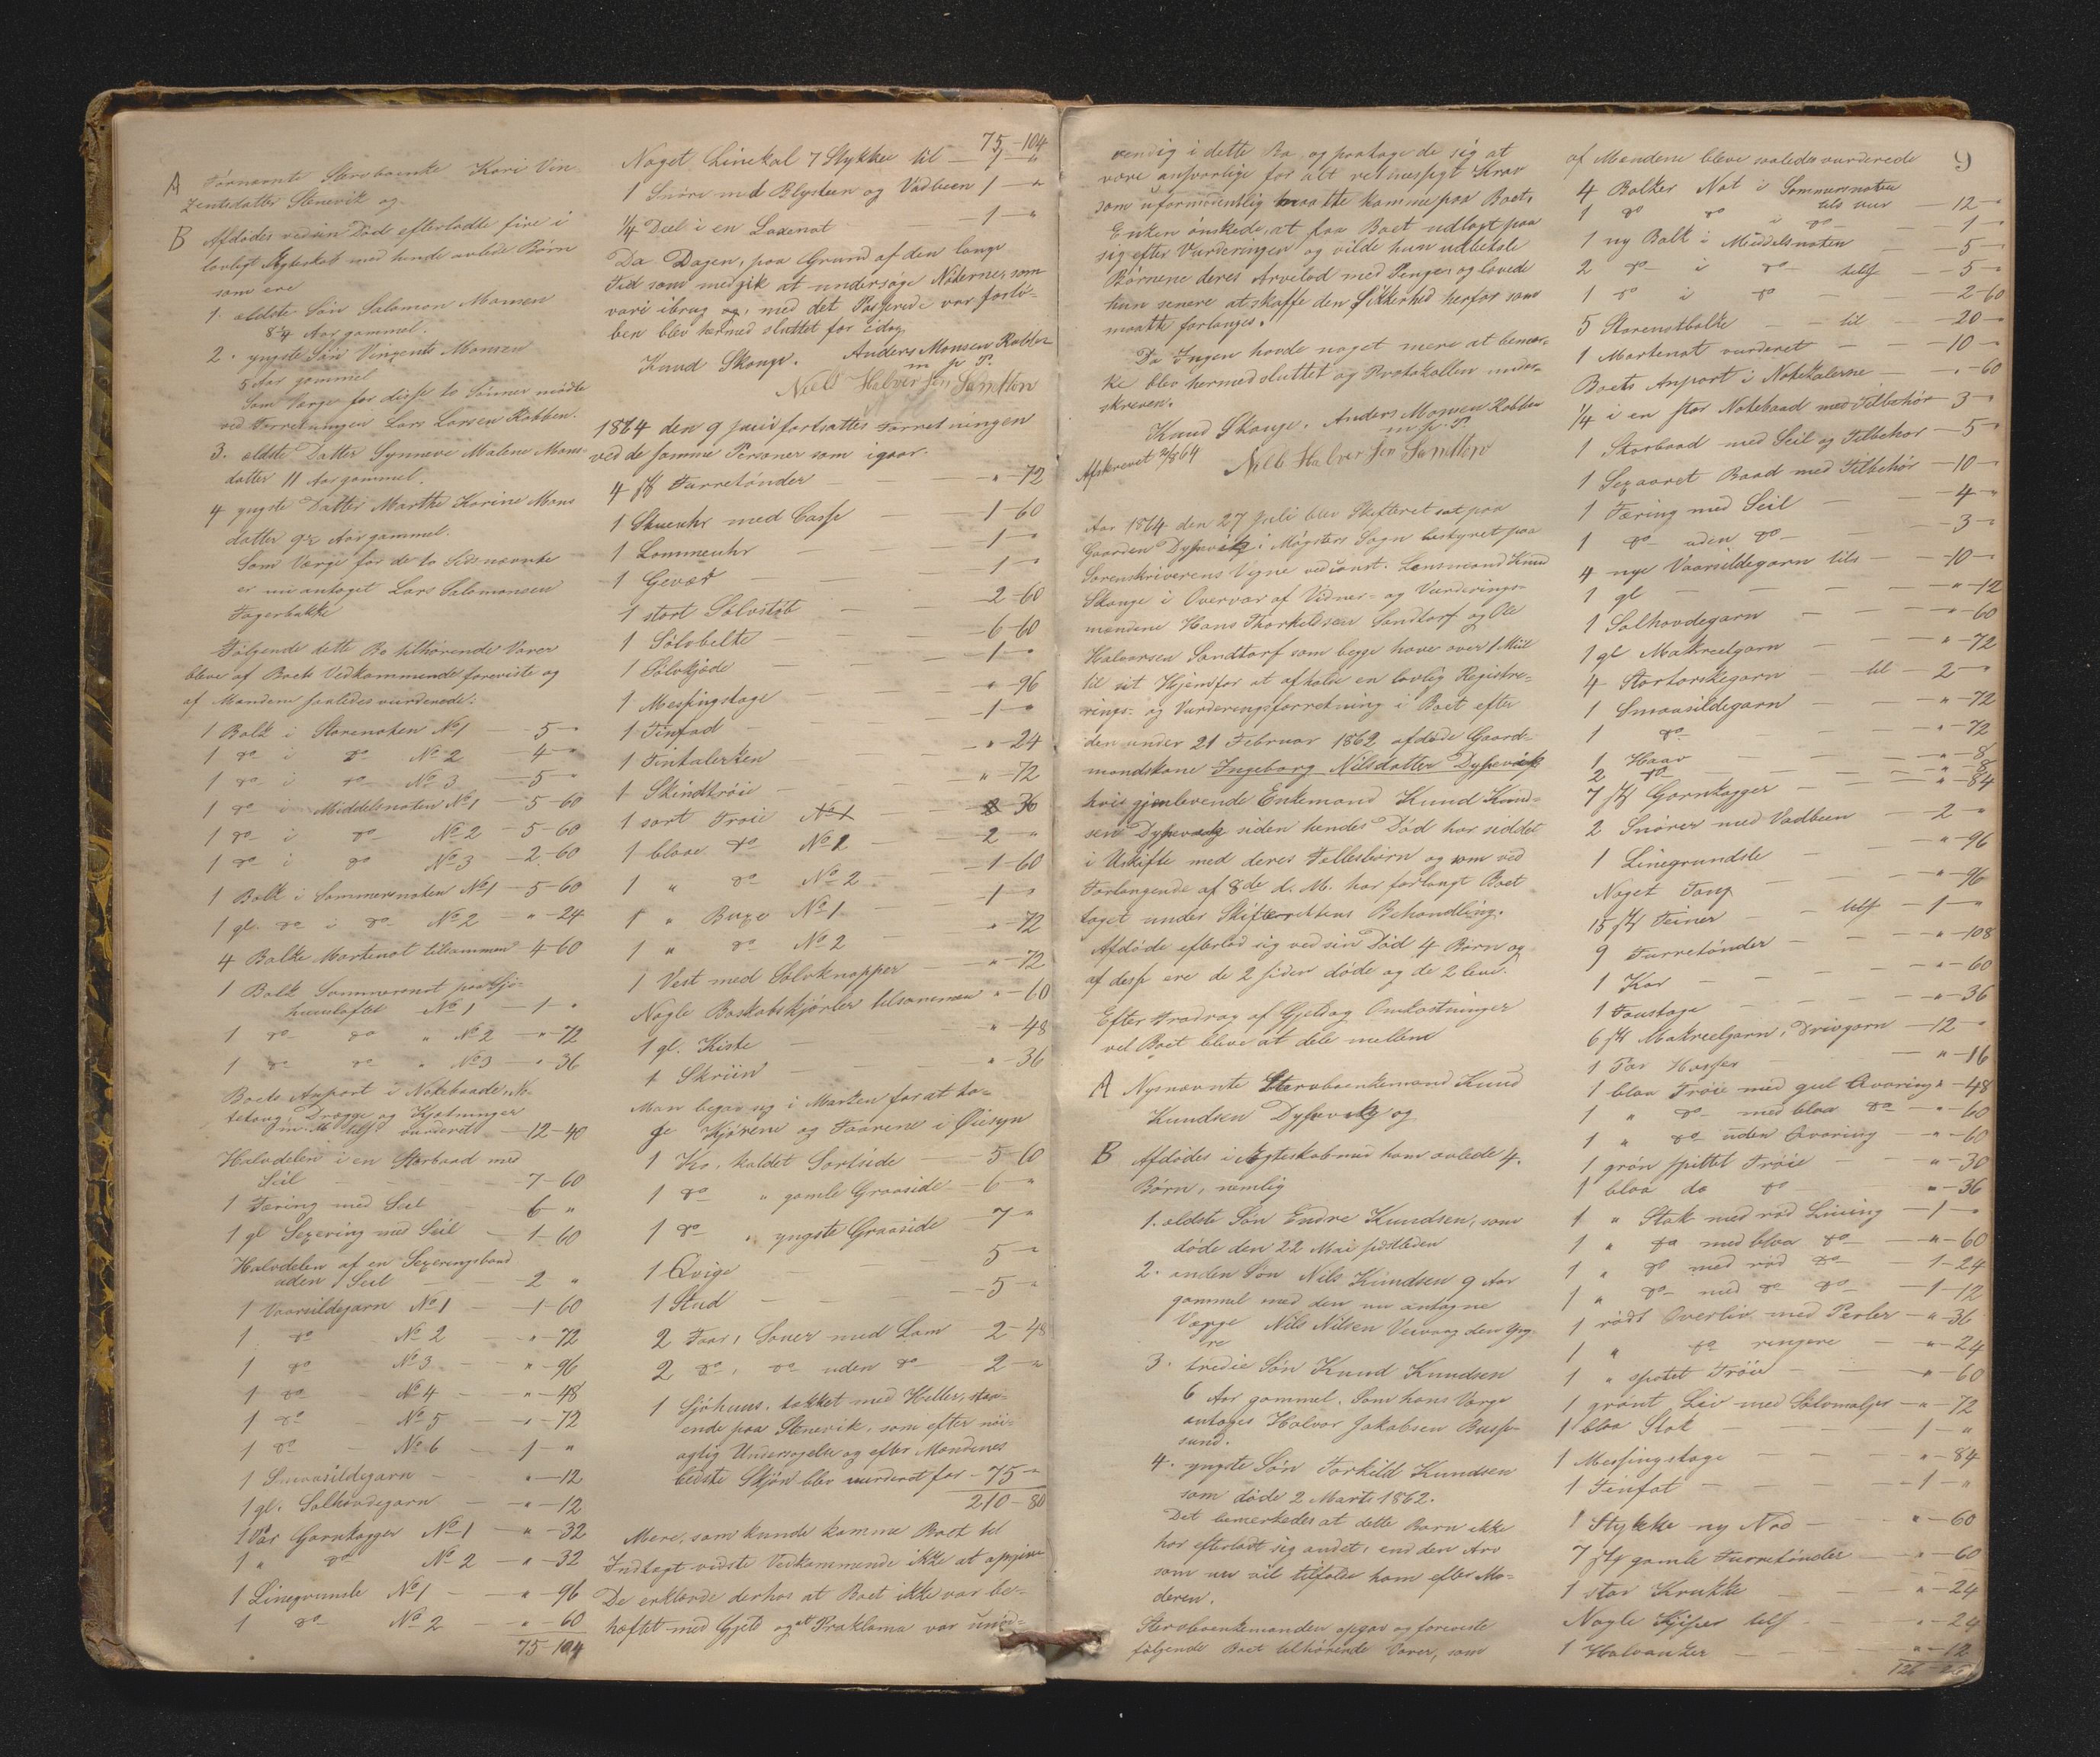 A Førnævnte Stervboenke Kari Vin-
zentsdatter Stenevik og
B Afdødes ved sin Død efterladte fire i
lovligt Ægteskab med hende avlede Børn
som ere
1. ældste Søn Salomon Monsen
8 3/4 Aar gammel.
2. yngste Søn Vingents Monsen
5 Aar gammel
Som Værge for disse to Sønner mødte
ved Forretningen Lars Larsen Robben.
3. ældste Datter Synneve Malene Mons-
datter 11 Aar gammel.
4 yngste Datter Marthe Karine Mons
datter 9 1/2 Aar gammel.
Som Værge for de to Sidsnævnte
er nu antaget Lars Salomonsen
Fagerbakke
Følgende dette Bo tilhørende Varer
bleve af Boets Vedkommende foreviste og
af Mændene saaledes vurderede:
1 Balk i Storenoten No 1 - 5 - "
1 do i do No 2 4 - "
1 do i do No 3 - 5 - "
1 do i Middelsnoten No 1 - 5 - 60
1 do i do No 2 - 5 - 60
1 do i do No 3 - 2 - 60
1 Balk i Sommernoten No 1 - 5 - 60
1 gl. do i do No 2 - " - 24
4 Balke Mortenot tilsammen 4 - 60
1 Balk Sommernot paa Sjø-
huusloftet No 1 - 1 - "
1 do do " No 2 - " - 72
1 do do " No 3 - " - 36
Boets Anport i Notebaade, No-
tetoug, Drægge og Kjætninger
m. M. tils. vurderet - 12 - 40
Halvdelen i en Storbaad med
Seil - 7 - 60
1 Færing med Seil - 6 - "
1 gl Sexæring med Seil - 1 - 60
Halvdelen af en Sexæringsbaad
uden Seil - 2 - "
1 Vaarsildegarn No 1 - 1 - 60
1 do No 2 - " - 72
1 do No 3 - " - 96
1 do No 4 - " - 48
1 do No 5 - " - 72
1 do No 6 - 1 - "
1 Smaasildegarn - " - 12
1 gl. Solhovdegarn - " - 12
1 Par Garnkagger No 1 - " - 32
1 " do No 2 - " - 32
1 Linegrunsle No 1 - " - 96
1 do No 2 - " - 60
75 - 104
75 - 104
Noget Linekal 7 Stykker til - 1 - "
1 Snøre med Blysteen og Vadbeen 1 - "
1/4 Deel i en Laxenot - 1 - "
Da Dagen, paa Grund af den lange
Tid som medgik at undersøge Nøterne, som
vare i brug og, med det Passerede var forlø-
ben blev hermed sluttet for idag.
Knud Skouge. Anders Monsen Robben
m. p. P.
Niels Halversen Sandtorv
1864 den 9 juni fortsattes Forretningen
ved de samme Personer som igaar.
4 stk Turretønder - " - 72
1 Stueuhr med Casse - 1 - 60
1 Lommeuhr - 1 - "
1 Gevær - 1 - "
1 stort Sølvstøb - 2 - 60
1 Sølvbelte - 6 - 60
1 Sølvkjæde - 1 - "
1 Messingstage - " - 96
1 Tinfad - 1 - "
1 Tintalerken - " - 24
1 Skindtrøie - " - 72
1 sort Trøie No 1 - 36
1 blaae do No 1 - 2 - "
1 " do No 2 - 1 - 60
1 " Buxe No 1 - 1 - "
1 " do No 2 - " - 72
1 Vest med Sølvknapper - " - 72
Nogle Boskabskjørler tilsammen " - 60
1 gl. Kiste - " - 48
1 Skriin - " - 36
Man begav sig i Marken for at ta-
ge Kjørene og Faarene i Øiesyn
1 Ko, kaldet Sortside - 5 - 60
1 do " gamle Graaside - 6 - "
1 do " yngste Graaside - 7 - "
1 Qvige - 5 - "
1 Stud - 5 - "
2 Faar, Souer med Lam 2 - 48
2 do, do uden do 2 - "
1 Sjøhuus, takket med Heller, staa-
ende paa Stenevik, som efter nøi-
agtig Undersøgelse og efter Mændenes
bedste Skjøn blev vurderet for - 75 - "
210 - 80
Mere, som kunde komme Boet til
Indtægt vidste Vedkommende ikke at opgive
De erklærde derhos at Boet ikke var be-
hæftet med Gjeld og at Proklama var unød-
vendig i dette Bo og paatoge de sig at
være ansvarlige for alt retmessigt Krav
som uformodentlig maatte komme paa Boet.
Enken ønskede, at faa Boet udlagt paa
sig efter Vurderingen og vilde hun udbetale
Børnene deres Arvelod med Penge og lovede
hun senere at skaffe den Sikkerhed herfor som
maatte forlanges.
Da Ingen havde noget mere at bemær-
ke blev hermed sluttet og Protokollen under-
skreven.
Knud Skouge. Anders Monsen Robben
m. p. P.
Afskrevet 7/8 64 Niels Halversen Sandtorv
Aar 1864 den 27 Juli blev Skifteret sat paa
Gaarden Dyssevig i Møgsters Sogn bestyret paa
Sorenskriverens Vegne ved const. Lensmand Knud
Skouge i Overvær af Vidner- og Vurderings-
mændene Hans Thorkildsen Sandtorf og Ole
Halvorsen Sandtorf som begge have over 1 Miil
til sit Hjem for at afholde en lovlig Registre-
rings- og Vurderingsforretning i Boet efter
den under 21 Februar 1862 afdøde Gaard-
mandskone Ingeborg Nilsdatter Dyssevig
hvis gjenlevende Enkemand Knud Knud-
sen Dyssevig siden hendes Død har siddet
i Uskifte med deres Fællesbørn og som ved
Forlangende af 8de d. M. har forlangt Boet
taget under Skifterettens Behandling.
Afdøde efterlod sig ved sin Død 4 Børn og
af dese ere de 2 siden døde og de 2 leve.
Efter Fradrag af Gjeld og Omkostninger
vil Boet blive at dele mellem
A Nysnævnte Stervboenkemand Knud
Knudsen Dyssevig og
B Afdødes i Ægteskab med ham avlede 4.
Børn, nemlig
1. ældste Søn Endre Knudsen, som
døde den 22 Mai sidstleden
2. anden Søn Nils Knudsen 9 Aar
gammel med den nu antagne
Værge Nils Nilsen Veivaag den yng-
re
3. tredie Søn Knud Knudsen
6 Aar gammel. Som hans Værge
antages Halvor Jakobsen Busse-
sund.
4. yngste Søn Torkild Knudsen
som døde 2 Marts 1862.
Det bemerkedes at dette Barn ikke
har efterladt sig andet, end den Arv
som nu vil tilfalde ham efter Mo-
deren.
Stervboenkemanden opgav og foreviste
følgende Boet tilhørende Varer, som
9
af Mændene bleve saaledes vurderede
4 Balker Not i Sommernoten
tils vur - 12 - "
1 do do i do - 1 - "
1 ny Balk i Middelsnoten - 5 - "
2 do i do tils - 5 - "
1 do i do - 2 - 60
5 Storenotbalke - til - 20 - "
1 Mortenot vurderet - 10 - "
Boets Anport i Notekalerne - " - 60
1/4 i en stor Notebaad med Tilbehør - 3 - "
1 Storbaad med Seil og Tilbehør - 5 - "
1 Sexaaret Baad med Tilbehør - 10 - "
1 Færing med Seil - 4 - "
1 do uden do - 3 - "
4 nye Vaarsildegarn tils - 10 - "
1 gl - " - 12
1 Solhovdegarn - " - 60
1 gl Makreelgarn - " - 72
4 Stortorskegarn - til - 2 - "
1 Smaasildegarn - " - 72
1 do - " - 72
1 Haav - " - 8
2 do - " - 8
7 stk Garnkagger - " - 84
2 Snører med Vadbeen - 2 - "
1 Linegrundsle - " - 96
Noget Toug - " - 96
15 stk Teiner - tils - 1 - "
9 Turretønder - " - 108
1 Kar - " - 60
1 Foustage - " - 36
6 stk Makreelgarn, Drivgarn - 12 - "
1 Par Hosser - " - 16
1 blaa Trøie med gul Qvaring " - 48
1 " do med blaa do - " - 60
1 " do uden Qvaring - " - 60
1 grøn spittet Trøie - " - 30
1 blaa do do " - 36
1 " Stak med rød Liining - 1 - "
1 " do med blaa do - " - 60
1 " do med rød do - 1 - 24
1 " do med do do - 1 - 12
1 rødt Overliv med Perler - " - 36
1 " do ringere " - 24
1 " spøtet Trøie - " - 60
1 grønt Liv med Sølvmaljer - " - 72
1 blaa Stak - 1 - "
1 Messingstage - " - 84
1 Tinfat - 1 - "
1 Stykke ny Nod - " - 60
7 stk gamle Turretønder - " - 60
1 stor Krukke - " - 24
Nogle Kjiper tils - " - 24
1 Halvanker - " - 12
126 - 26